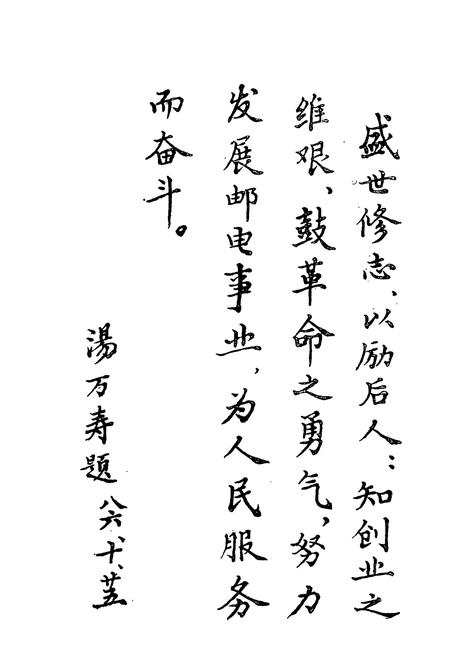 盛世修志、以励后人：知创业之
维艰、鼓革命之勇气，努力
发展邮电事业，为人民服务
而奋斗。
湯万寿题 八六、十、廿五